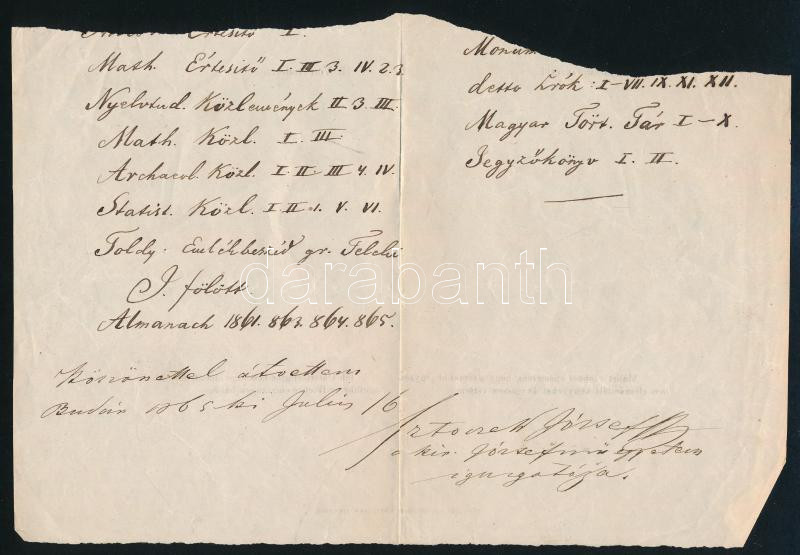 Értesitő I.
Math. Értesitő I. III 3. IV. 2.3.
Nyelvtud. Közlemények II 3. III.
Math. Közl. I. III.
Archaeol. Közl. I. II. III 4. IV.
Statist. Közl. I. II. 1. V. VI.
Toldy. Emlékbeszéd gr. Teleki
J. fölött.
Almanach 1861. 863. 864. 865.
Monum
detto Irók: I–VII. IX. XI. XII.
Magyar Tört. Tár I–X.
Jegyzőkönyv I. II.
Köszönettel átvettem
Budán 1865 ki Julius 16
Sztoczek József
a kir. József műegyetem
igazgatója.
darabanth